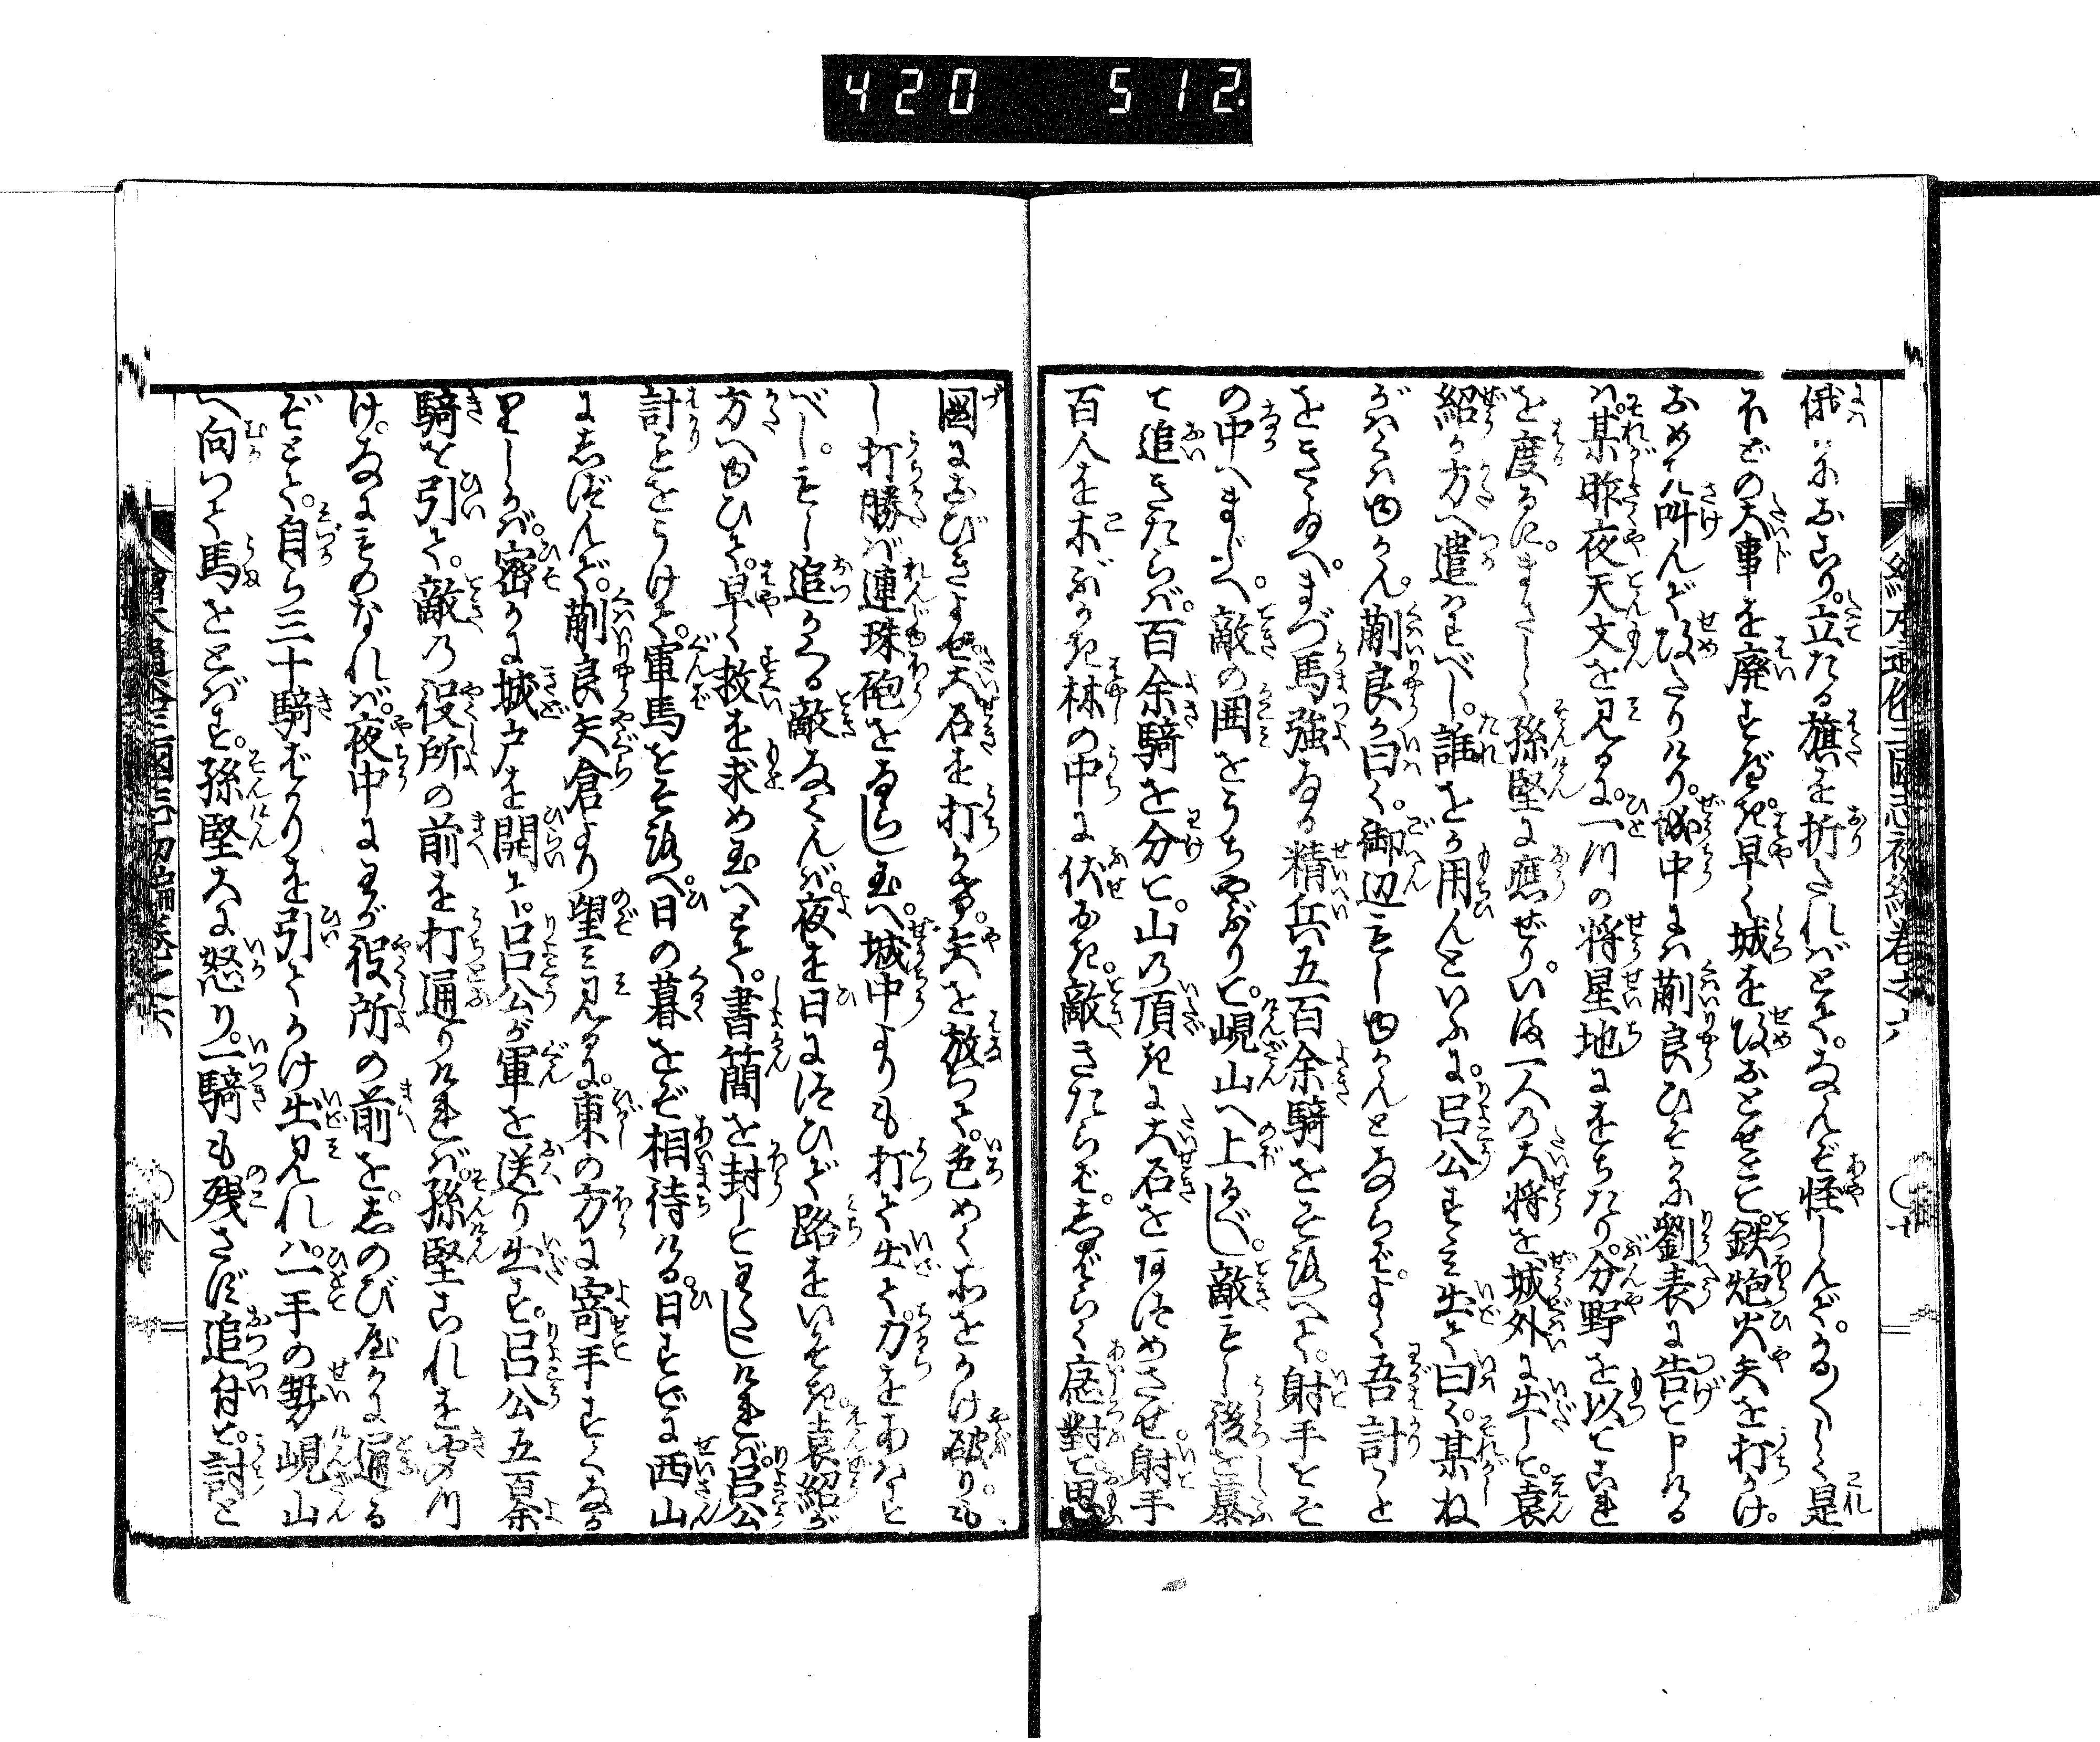 420 512
絵本通俗三國志初編巻之六
俄におこり。立たる旗を折たればとて。なんぞ怪しんぞ。かろ〴〵しく是
ほどの大事を廃すべき。早く城を攻おとせとて。鉄炮火矢を打かけ。
おめき叫んで攻たりけり。城中には蒯良ひそかに劉表に告て申ける
は。某昨夜天文を見るに。一川の将星地におちたり。分野を以てこれ
を度るに。まさしく孫堅に應ぜり。いま一人の大将を城外に出して。袁
紹が方へ遣はすべし。誰をか用んといふに。呂公すゝみ出て曰く。某ね
がはくはゆかん。蒯良が曰く。御辺もしゆかんとならば。よく吾計ことを
をきゝ給へ。まづ馬強なる精兵五百余騎をそろへて。射手をそ
の中へまじへ。敵の囲をうちやぶりて。峴山へ上るべし。敵もし後を慕
て追きたらば。百余騎を分て。山の頂きに大石をあつめさせ射手
百人を木ぶかき林の中に伏おき。敵きたらば。しばらく應對て思
圖におびきよせ。大石を打かけ。矢を放つて。色めく所をかけ破りも
し打勝ば連珠砲をならし玉へ。城中よりも打て出て力をあはす
べし。もし追かくる敵なくんば夜を日につひで路をいそぎ。袁紹が
方へゆひて。早く救を求め玉へとて。書簡を封じてわたしければ。呂公
計ことをうけて。軍馬をそろへ日の暮をぞ相待ける。日すでに西山
にしづんで。蒯良矢倉より望み見るに。東の方に寄手すくなか
りしかば。密かに城戸を開て。呂公が軍を送り出す。呂公五百余
騎を引て。敵の役所の前を打通りければ。孫堅これを聞つ
け。なにものなれば。夜中にわが役所の前を。しのびやかに通る
ぞとて。自ら三十騎ばかりを引てかけ出見れば。一手の勢峴山
へ向つて馬をとばす。孫堅大に怒り。一騎も残さず追付て。討と
絵本通俗三國志初編巻之六